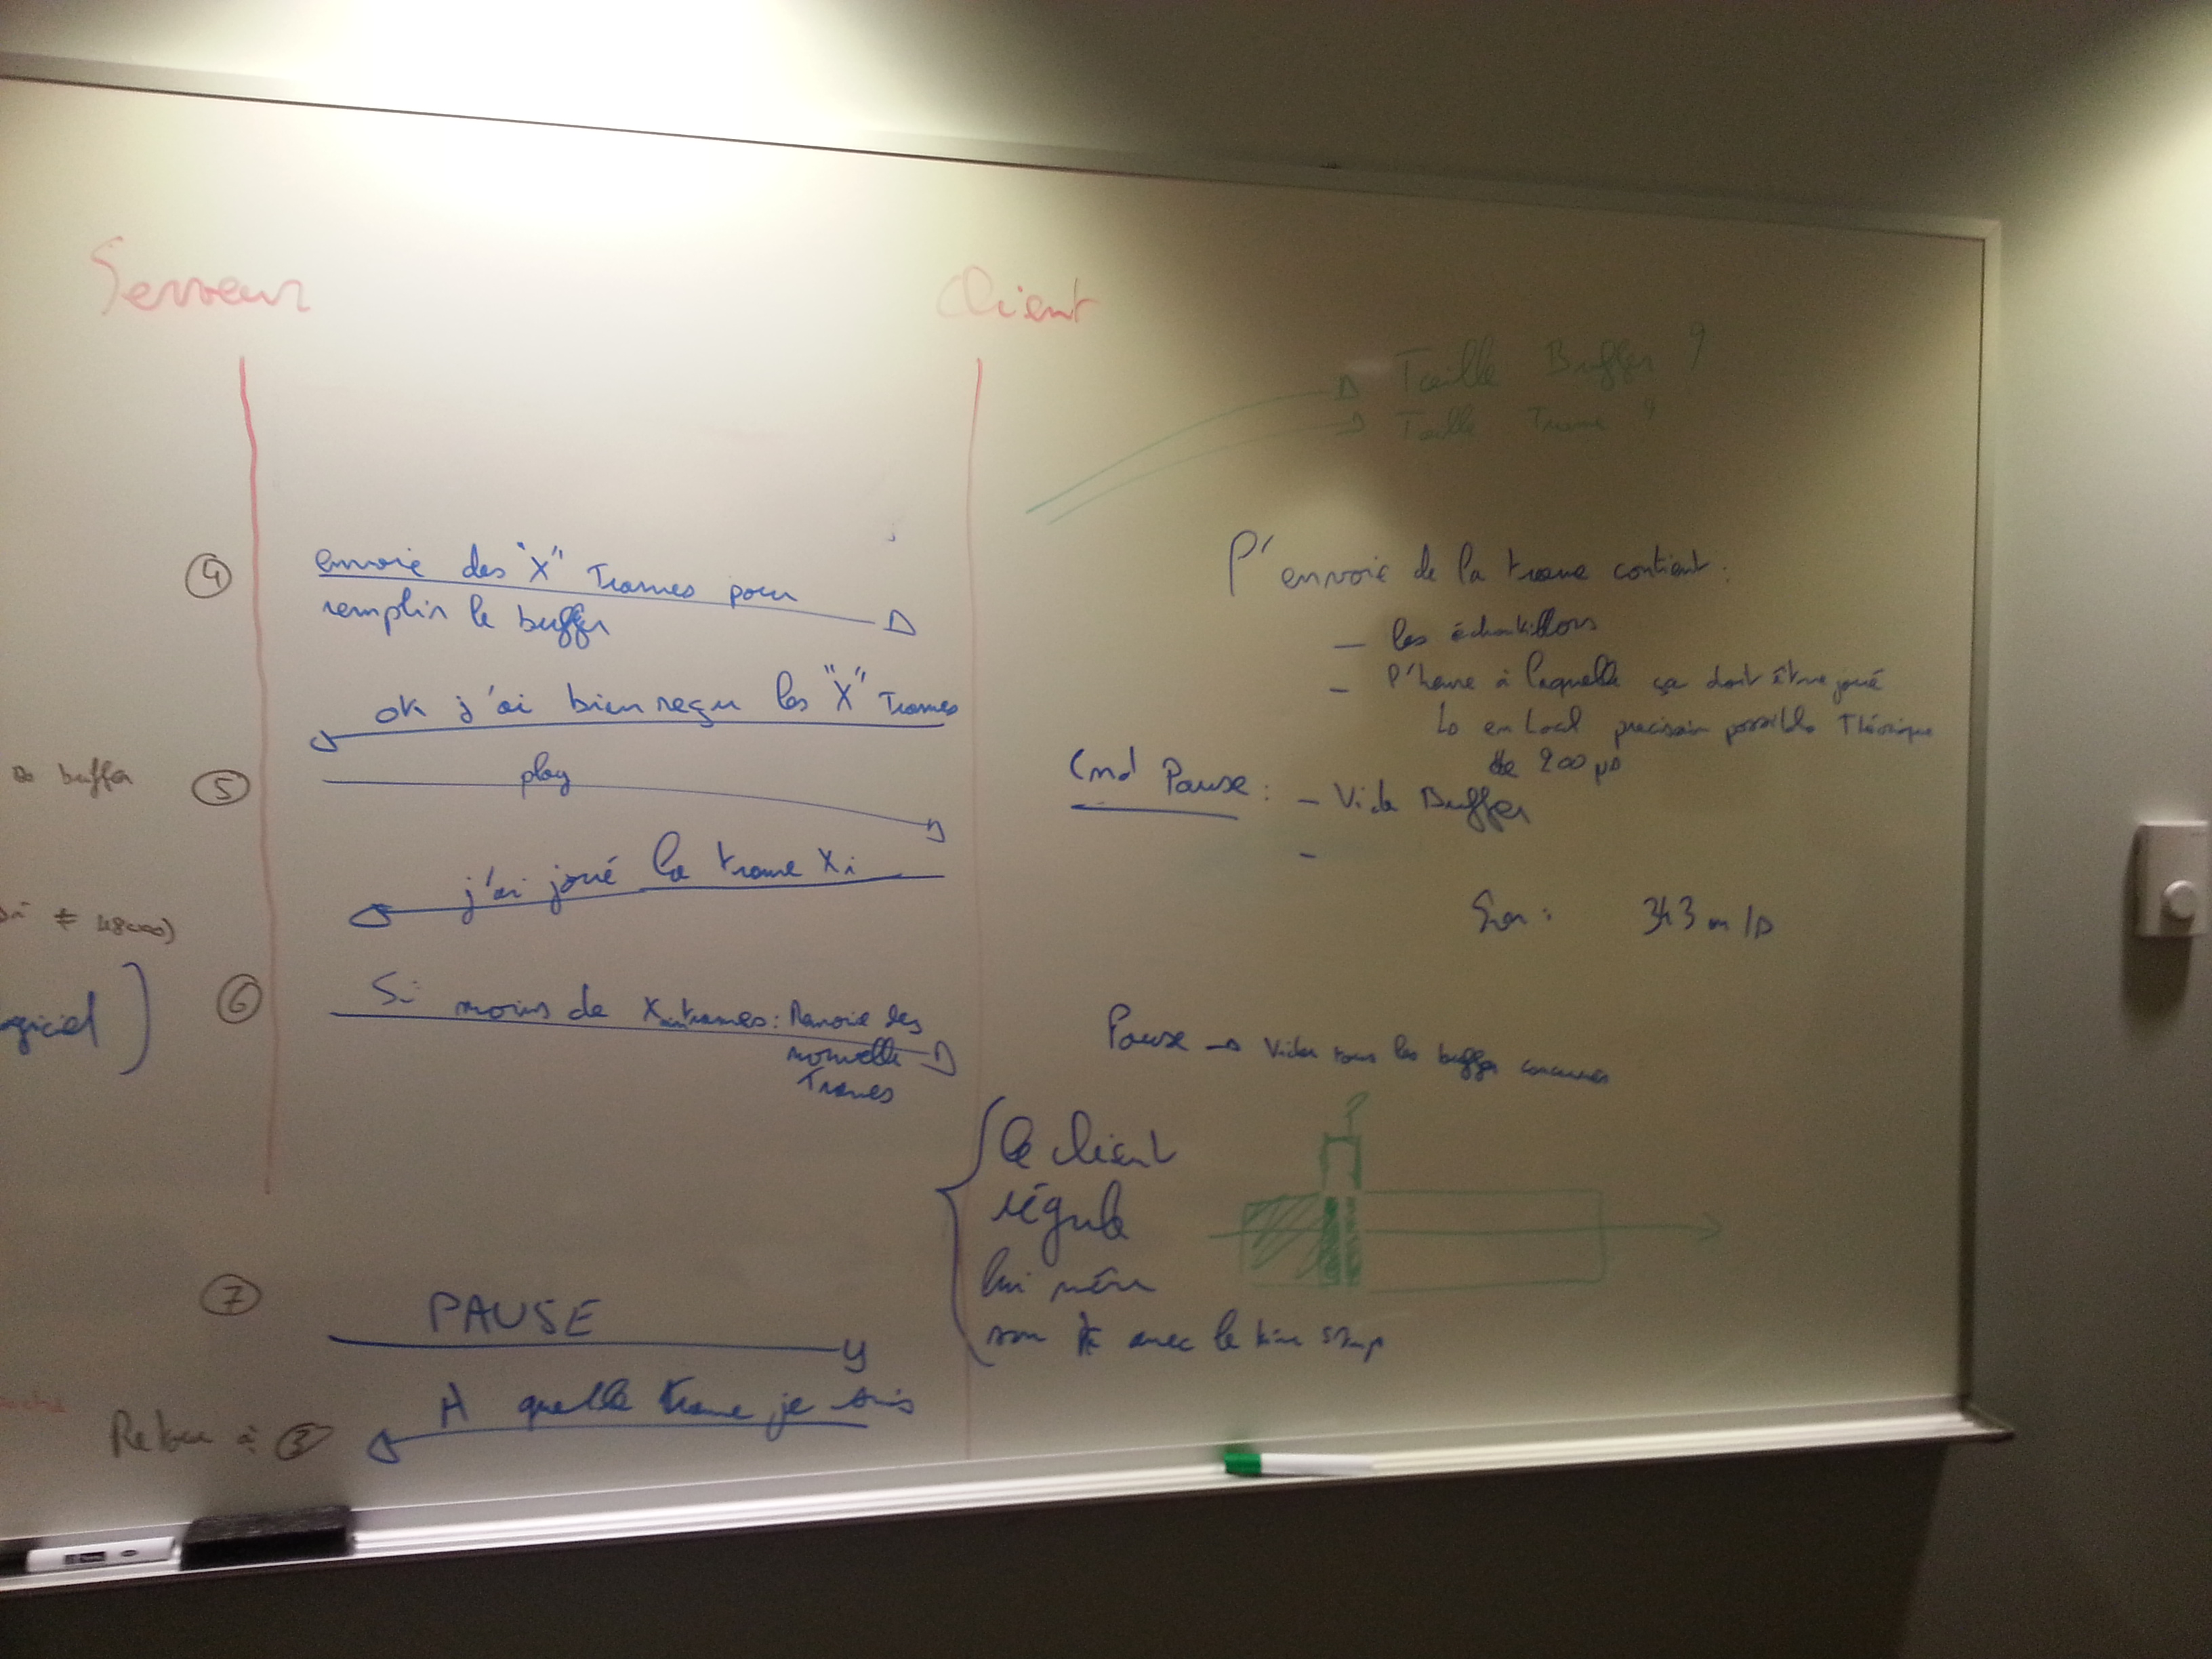 Serveur
Client
Taille Buffer ?
Taille Trame ?
④ envoie des "X" Trames pour
remplir le buffer
ok j'ai bien reçu les "X" Trames
buffer
⑤ play
j'ai joué la trame Xi
≠ 48000)
ogiciel)
⑥ Si moins de X trames : Renvoie des
nouvelle
Trames
⑦ PAUSE
A quelle trame je suis
Retour à ③
l'envoie de la trame contient :
- les échantillons
- l'heure à laquelle ça doit être joué
en local precision possible Théorique
de 200 µs
Cmd Pause : - Vide Buffer
-
Son : 343 m/s
Pause → Vider tous les buffer concernés
Le client
régule
lui même
son avec le time stamp